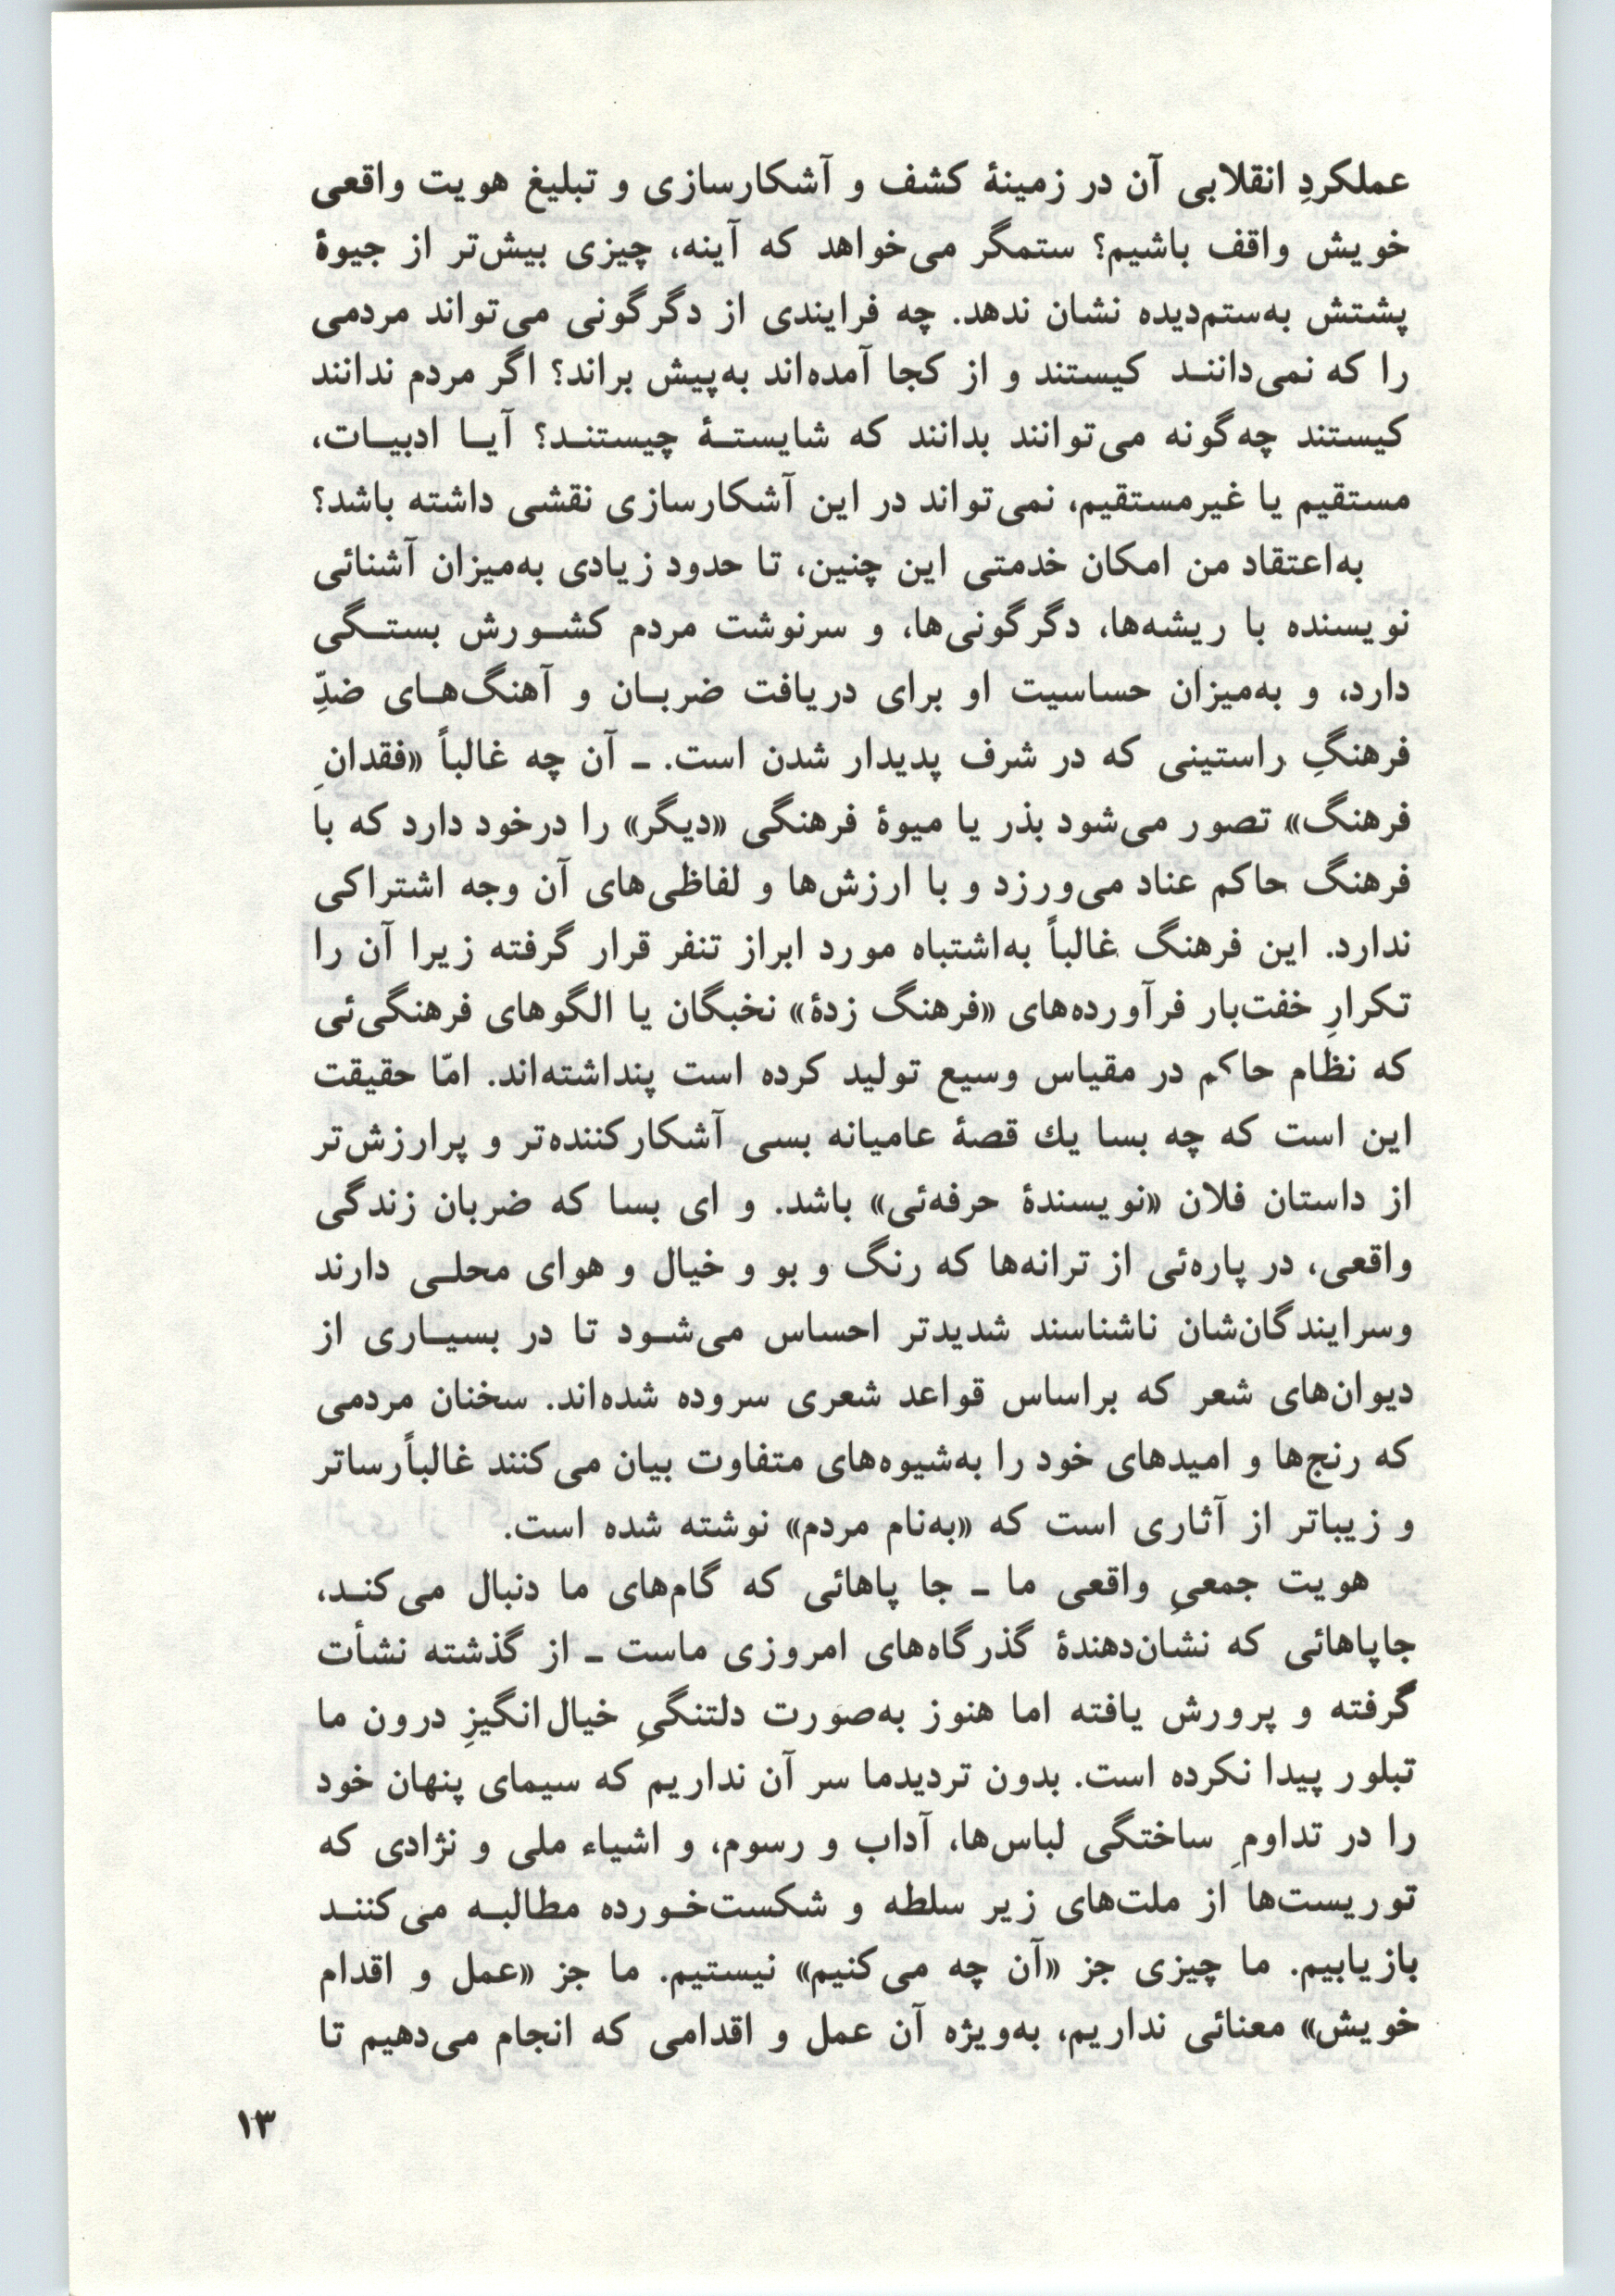 عملکردِ انقلابی آن در زمینهٔ کشف و آشکارسازی و تبلیغ هویت واقعی
خویش واقف باشیم؟ ستمگر می‌خواهد که آینه، چیزی بیش‌تر از جیوهٔ
پشتش به‌ستم‌دیده نشان ندهد. چه فرایندی از دگرگونی می‌تواند مردمی
را که نمی‌داننـد کیستند و از کجا آمده‌اند به‌پیش براند؟ اگر مردم ندانند
کیستند چه‌گونه می‌توانند بدانند که شایستـهٔ چیستنـد؟ آیـا ادبیـات،
مستقیم یا غیرمستقیم، نمی‌تواند در این آشکارسازی نقشی داشته باشد؟
به‌اعتقاد من امکان خدمتی این چنین، تا حدود زیادی به‌میزان آشنائی
نویسنده با ریشه‌ها، دگرگونی‌ها، و سرنوشت مردم کشـورش بستـگی
دارد، و به‌میزان حساسیت او برای دریافت ضربـان و آهنگ‌هـای ضدِّ
فرهنگِ راستینی که در شرف پدیدار شدن است. ـ آن چه غالباً «فقدانِ
فرهنگ» تصور می‌شود بذر یا میوهٔ فرهنگی «دیگر» را درخود دارد که با
فرهنگ حاکم عناد می‌ورزد و با ارزش‌ها و لفاظی‌های آن وجه اشتراکی
ندارد. این فرهنگ غالباً به‌اشتباه مورد ابراز تنفر قرار گرفته زیرا آن را
تکرارِ خفت‌بار فرآورده‌های «فرهنگ زدهٔ» نخبگان یا الگوهای فرهنگی‌ئی
که نظام حاکم در مقیاس وسیع تولید کرده است پنداشته‌اند. امّا حقیقت
این است که چه بسا یك قصهٔ عامیانه بسی آشکارکننده‌تر و پرارزش‌تر
از داستان فلان «نویسندهٔ حرفه‌ئی» باشد. و ای بسا که ضربان زندگی
واقعی، در پاره‌ئی از ترانه‌ها که رنگ و بو و خیال و هوای محلـی دارند
وسرایندگان‌شان ناشناسند شدیدتر احساس می‌شـود تا در بسیـاری از
دیوان‌های شعر که براساس قواعد شعری سروده شده‌اند. سخنان مردمی
که رنج‌ها و امیدهای خود را به‌شیوه‌های متفاوت بیان می‌کنند غالباًرساتر
و زیباتر از آثاری است که «به‌نام مردم» نوشته شده است.
هویت جمعیِ واقعی ما ـ جا پاهائی که گام‌های ما دنبال می‌کنـد،
جاپاهائی که نشان‌دهندهٔ گذرگاه‌های امروزی ماست ـ از گذشته نشأت
گرفته و پرورش یافته اما هنوز به‌صورت دلتنگیِ خیال‌انگیزِ درون ما
تبلور پیدا نکرده است. بدون تردیدما سر آن نداریم که سیمای پنهان خود
را در تداومِ ساختگی لباس‌ها، آداب و رسوم، و اشیاء ملی و نژادی که
توریست‌ها از ملت‌های زیر سلطه و شکست‌خـورده مطالبـه می‌کننـد
بازیابیم. ما چیزی جز «آن چه می‌کنیم» نیستیم. ما جز «عمل و اقدام
خویش» معنائی نداریم، به‌ویژه آن عمل و اقدامی که انجام می‌دهیم تا
۱۳